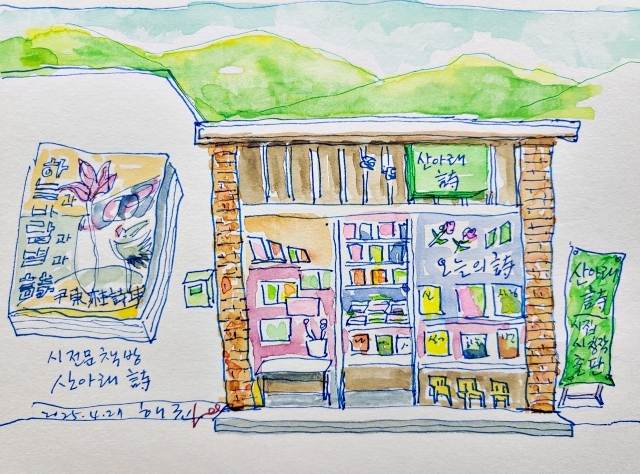 하늘과
바람과
별과
詩
尹東柱詩集
시전문책방
산아래 詩
산아래
詩
오늘의 詩
산아래
詩
시집
시창작